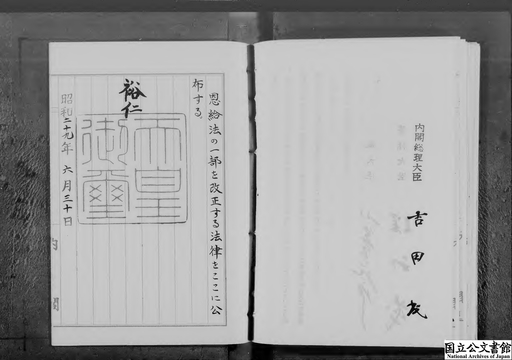 恩給法の一部を改正する法律をここに公
布する。
裕仁
天皇
御璽
昭和二十九年 六月三十日
内閣
内閣総理大臣 吉田茂
国立公文書館
National Archives of Japan